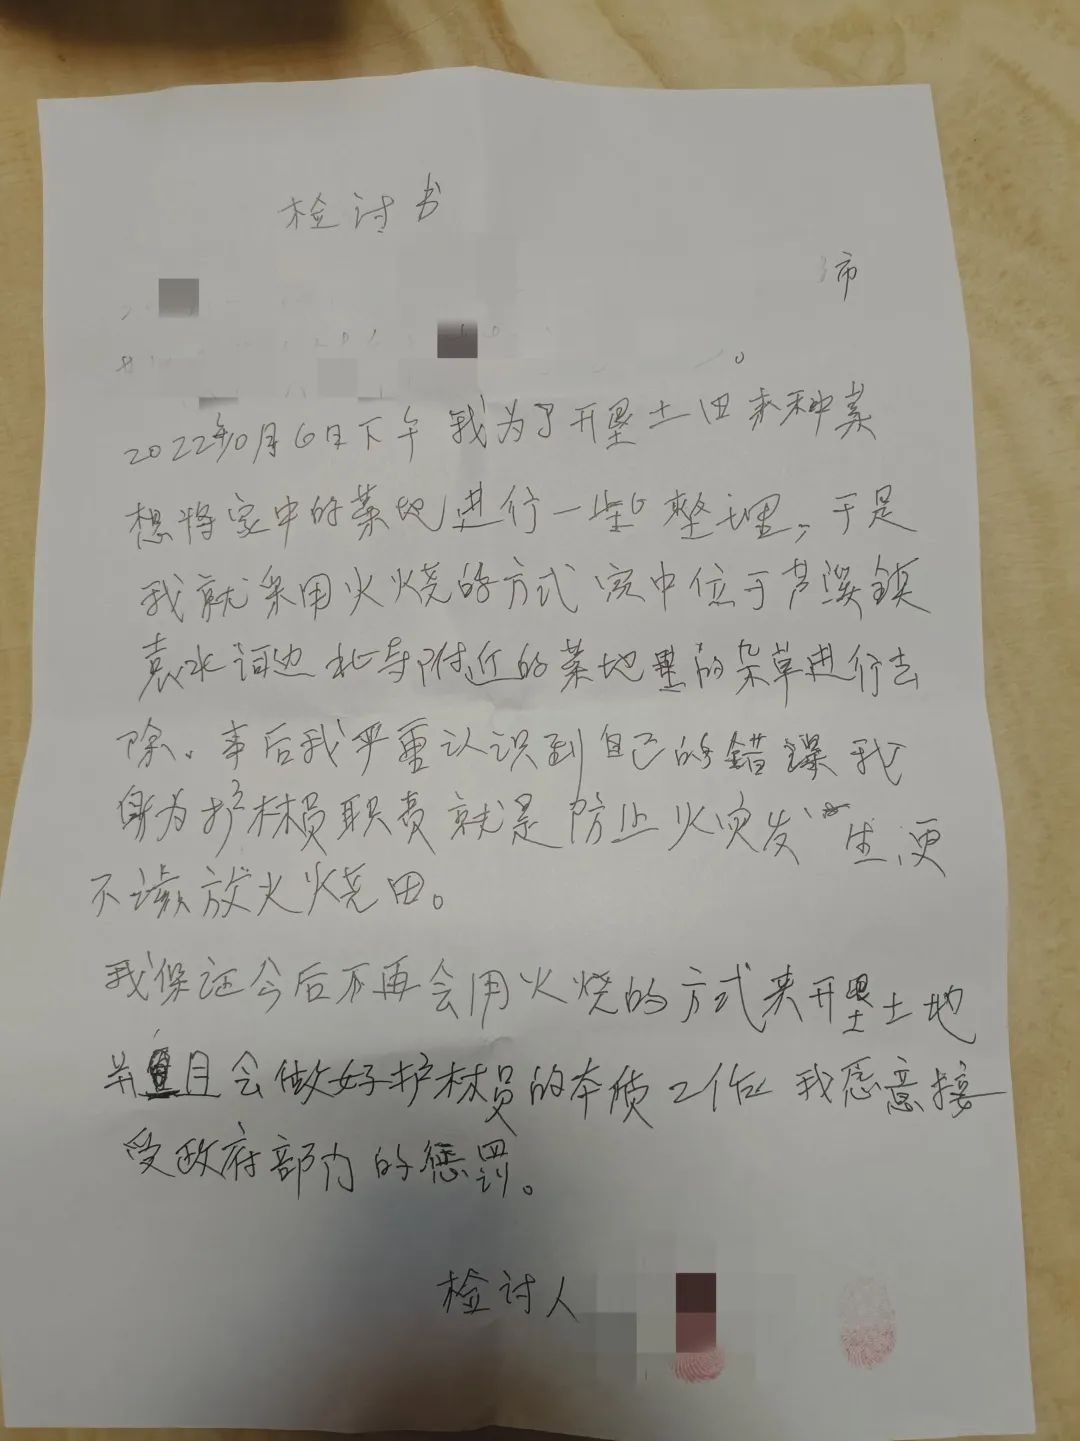 检讨书
市
2022年10月6日下午 我为了开垦土田来种菜
想将家中的菜地进行一些整理,于是
我就采用火烧的方式 家中位于芦溪镇
袁水河边 附近的菜地里的杂草进行去
除。事后我严重认识到自己的错误 我
身为护林员职责就是防止火灾发生,更
不该放火烧田。
我保证今后不再会用火烧的方式来开垦土地
并且会做好护林员的本质工作 我愿意接
受政府部门的惩罚。
检讨人